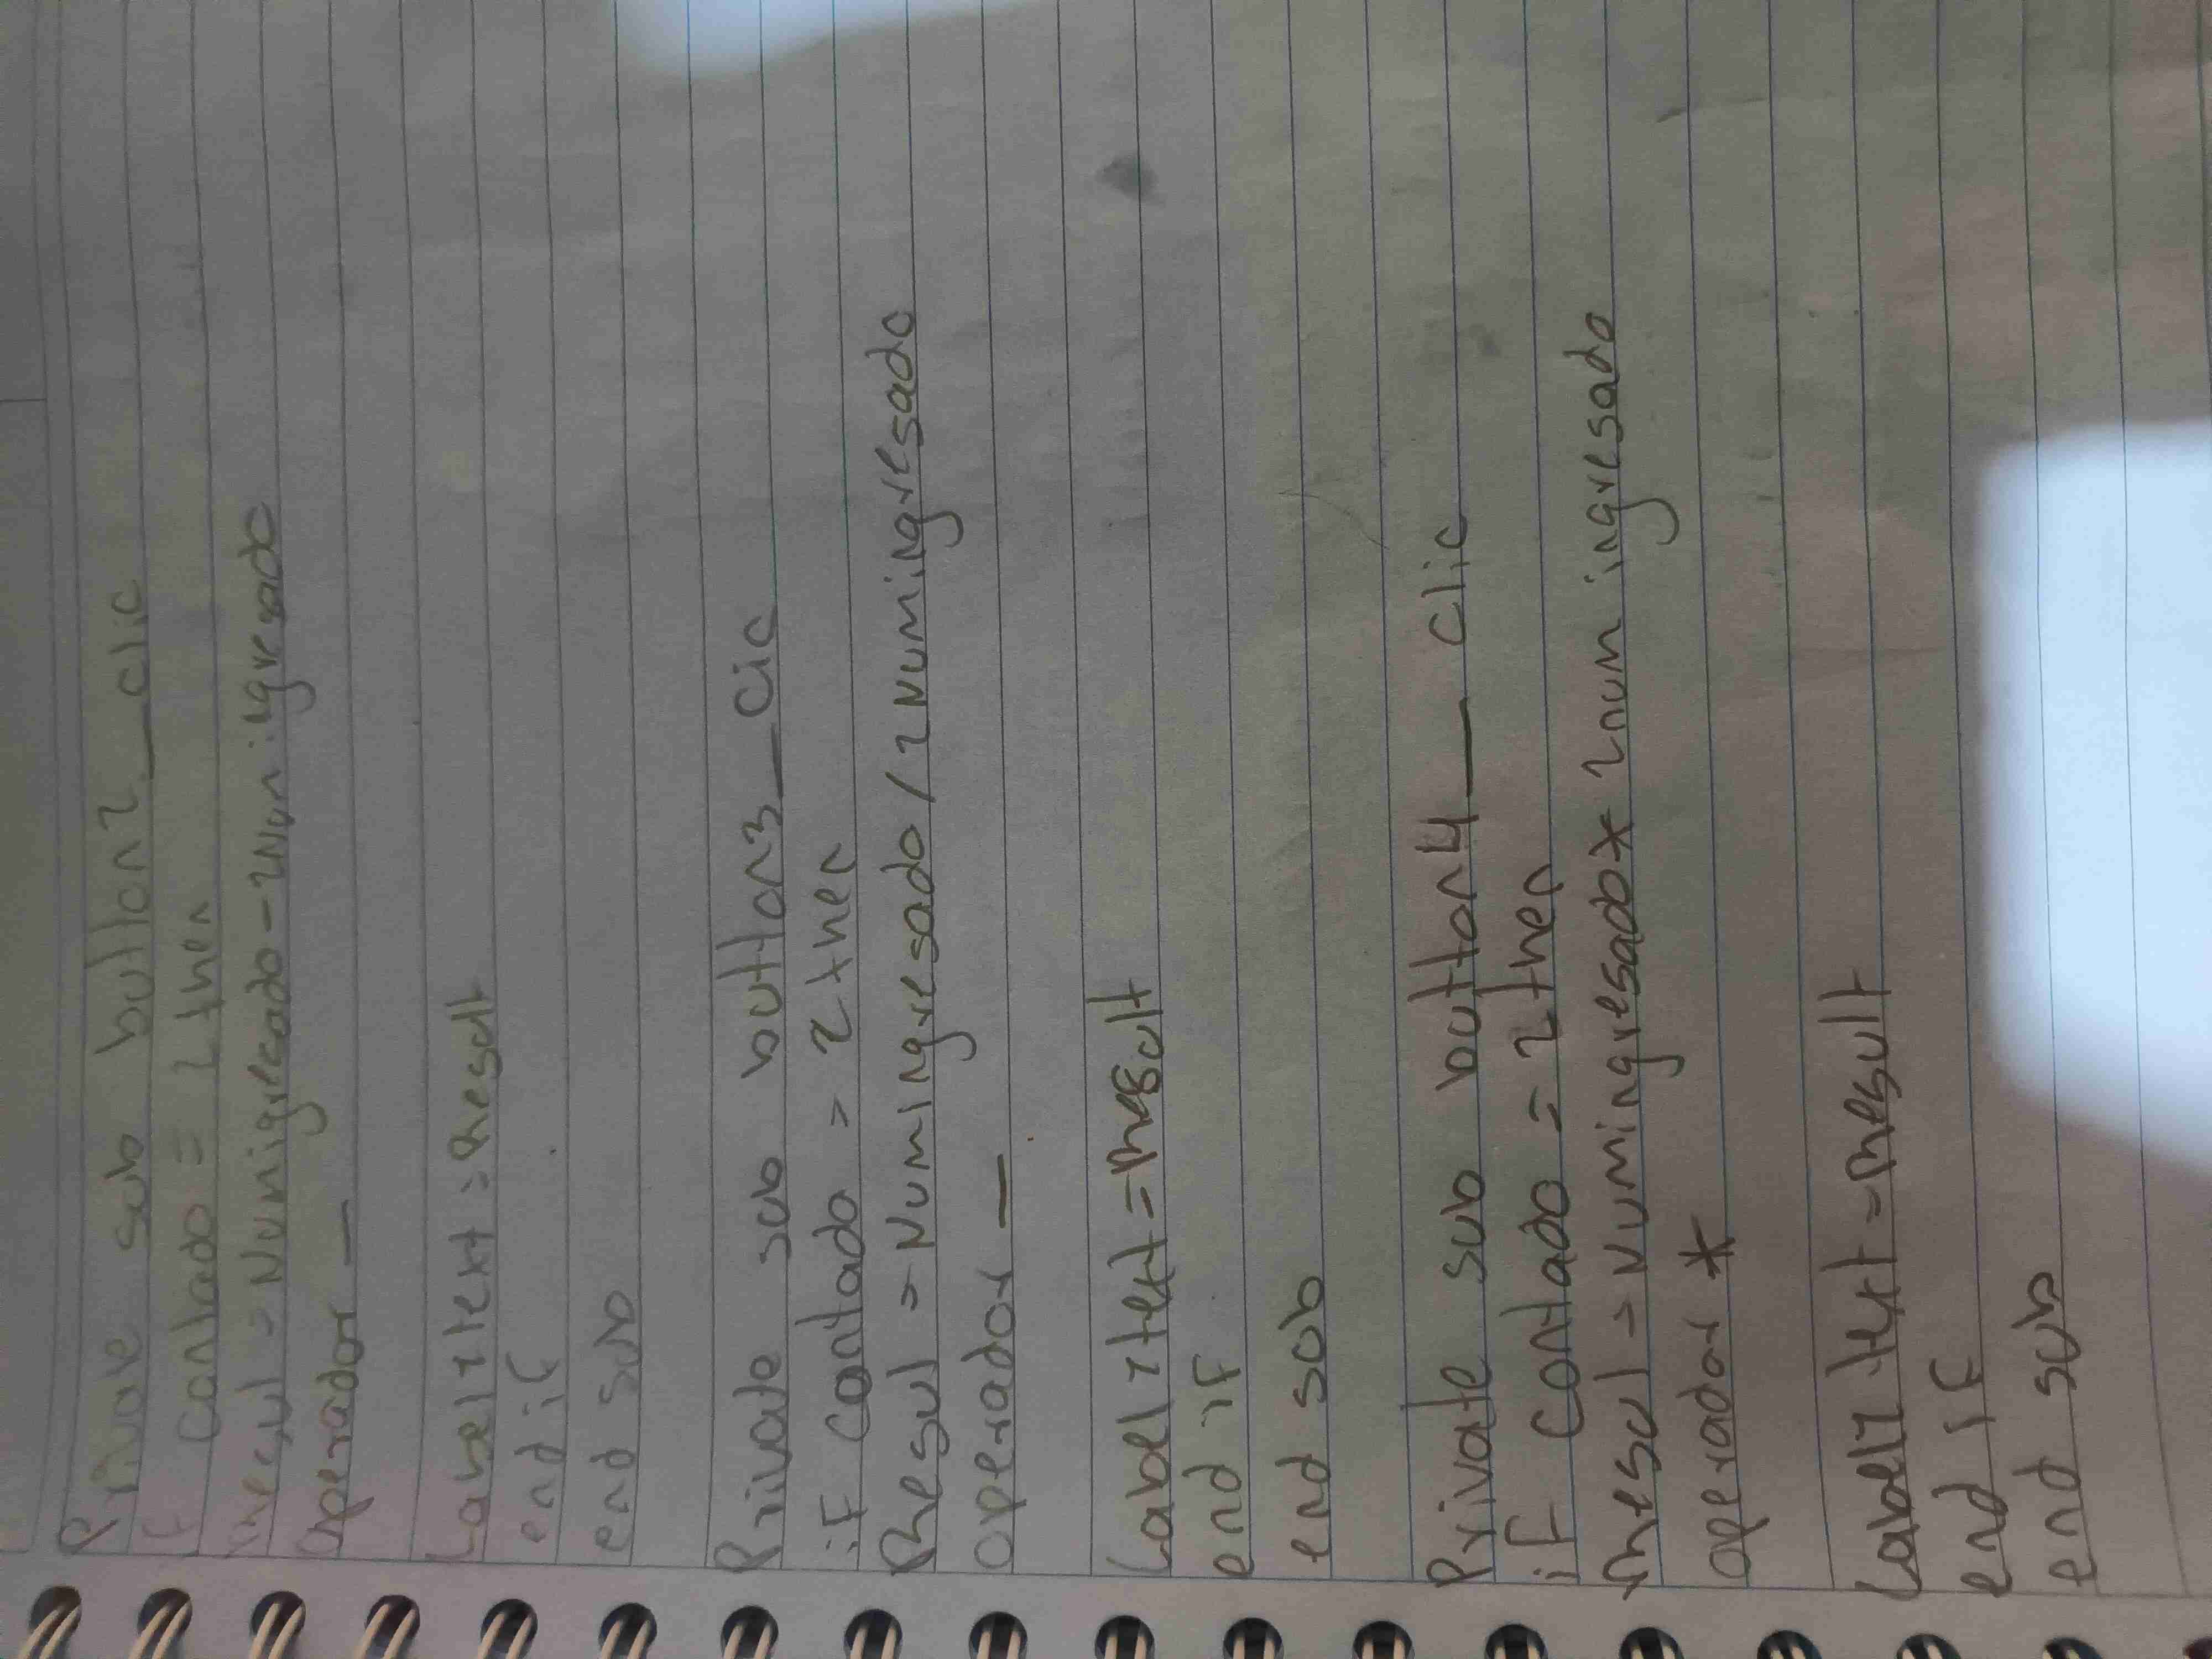 Private sub button2_clic
if contado = 2 then
Resul = Numigresado - 2Num igresado
operador -
Label2text = Result
end if
end sub
Private sub button3_Cic
if contado = 2 then
Resul = Numingresado / 2Numingresado
operador -
Label2text = Result
end if
end sub
Private sub button4_clic
if contado = 2 then
Resul = Numingresado * 2num ingresado
operador *
Label2 text = Result
end if
end sub